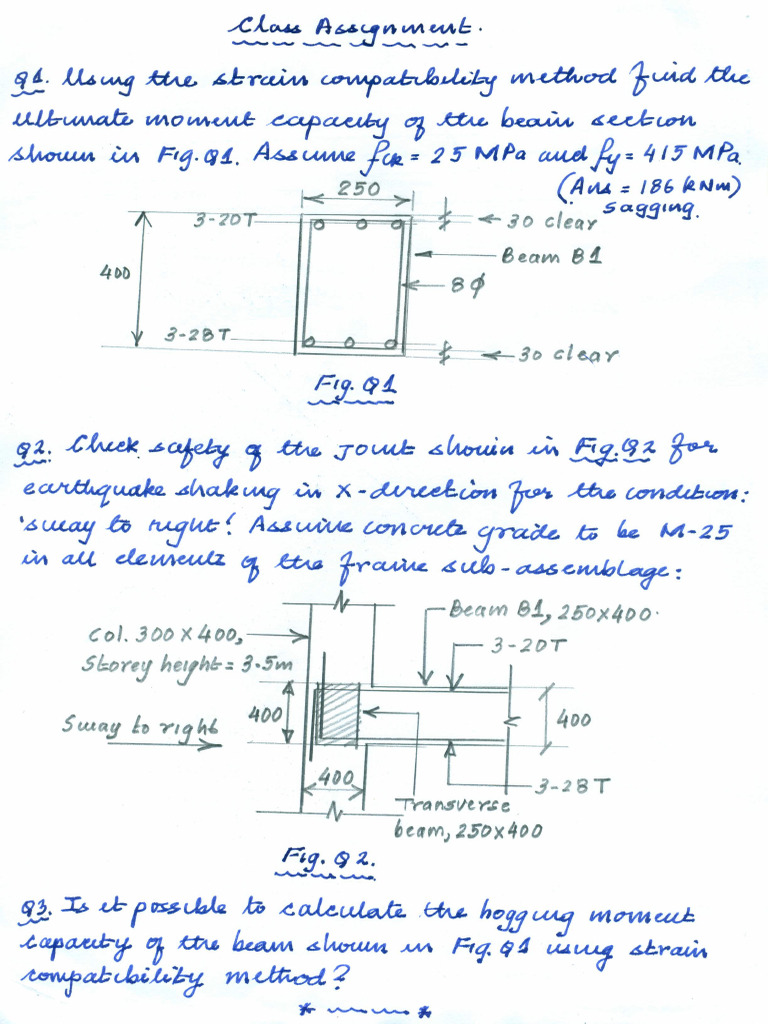 Class Assignment.
Q1. Using the strain compatibility method find the
ultimate moment capacity of the beam section
shown in Fig. Q1. Assume fck = 25 MPa and fy = 415 MPa.
(Ans = 186 kNm)
sagging.
250
3-20T
30 clear
Beam B1
400
8ϕ
3-28T
30 clear
Fig. Q1
Q2. Check safety of the joint shown in Fig. Q2 for
earthquake shaking in X-direction for the condition:
'sway to right'. Assume concrete grade to be M-25
in all elements of the frame sub-assemblage:
Beam B1, 250×400.
Col. 300×400,
3-20T
Storey height = 3.5m
400
400
Sway to right
400
3-28T
Transverse
beam, 250×400
Fig. Q2.
Q3. Is it possible to calculate the hogging moment
capacity of the beam shown in Fig. Q1 using strain
compatibility method?